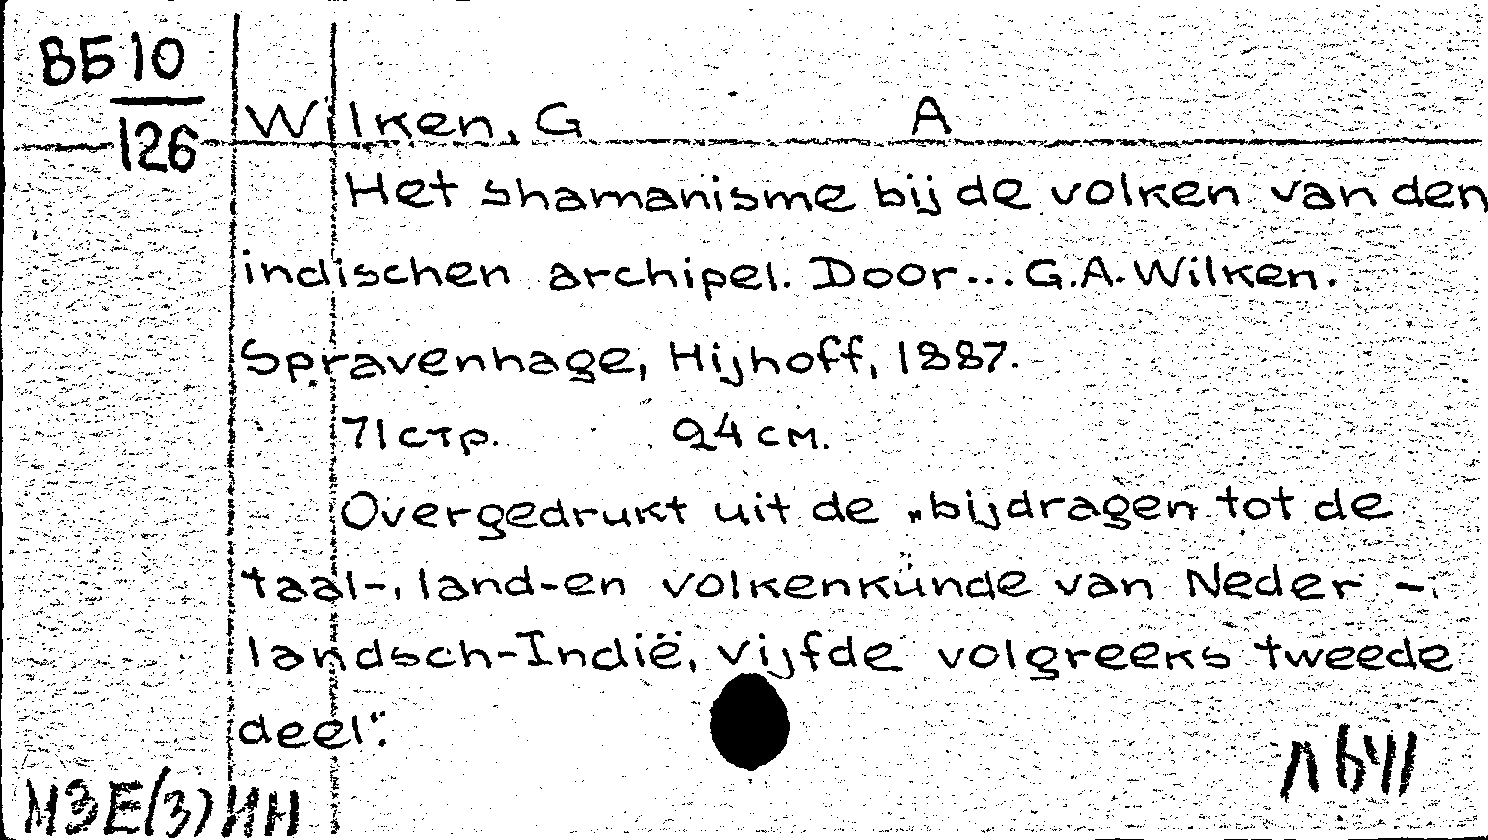 ВБ10
126
Wilken, G A
Het shamanisme bij de volken van den
indischen archipel. Door... G.A. Wilken.
Spravenhage, Hijhoff, 1887.
71 стр. 24 см.
Overgedrukt uit de „bijdragen tot de
taal-, land-en volkenkünde van Neder-
landsch-Indië, vijfde volgreeks tweede
deel".
МЗЕ(3)ИН